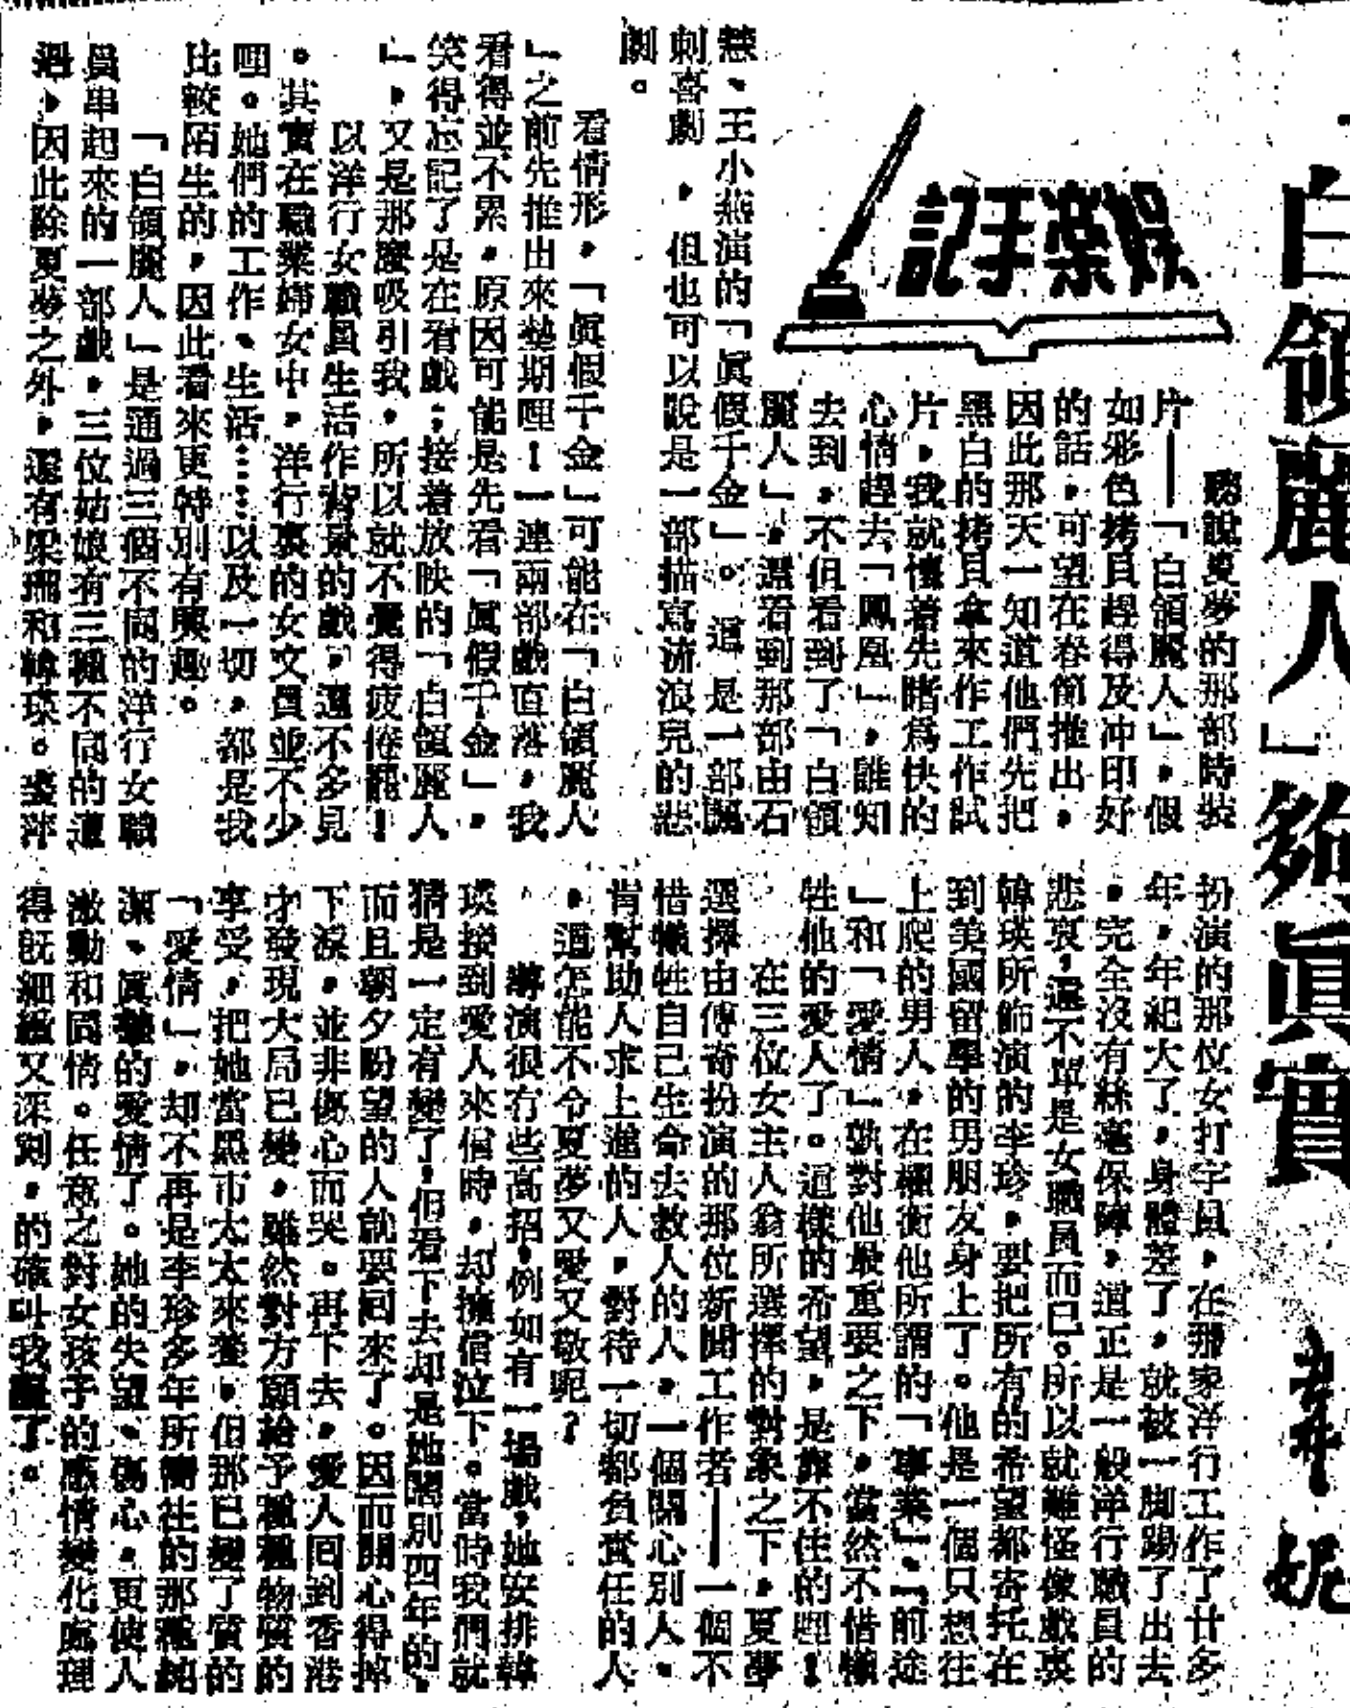 「白領麗人」夠眞實
莘妮
娛樂手記
聽說夏夢的那部時裝
片——「白領麗人」，假
如彩色拷貝趕得及冲印好
的話，可望在春節推出，
因此那天一知道他們先把
黑白的拷貝拿來作工作試
片，我就懷着先睹爲快的
心情趕去「鳳凰」，誰知
去到，不但看到了「白領
麗人」，還看到那部由石
慧、王小燕演的「眞假千金」。這是一部諷
刺喜劇，但也可以說是一部描寫流浪兒的悲
劇。
看情形，「眞假千金」可能在「白領麗人
」之前先推出來墊期哩！一連兩部戲直落，我
看得並不累，原因可能是先看「眞假千金」，
笑得忘記了是在看戲；接着放映的「白領麗人
」，又是那麼吸引我，所以就不覺得疲倦罷！
以洋行女職員生活作背景的戲，還不多見
。其實在職業婦女中，洋行裏的女文員並不少
哩。她們的工作、生活……以及一切，都是我
比較陌生的，因此看來更特別有興趣。
「白領麗人」是通過三個不同的洋行女職
員串起來的一部戲，三位姑娘有三種不同的遭
遇，因此除夏夢之外，還有梁珊和韓瑛。裘萍
扮演的那位女打字員，在那家洋行工作了廿多
年，年紀大了，身體差了，就被一脚踢了出去
，完全沒有絲毫保障，這正是一般洋行職員的
悲哀，還不單是女職員而已。所以就難怪像戲裏
韓瑛所飾演的李珍，要把所有的希望都寄托在
到美國留學的男朋友身上了。他是一個只想往
上爬的男人，在權衡他所謂的「事業」、「前途
」和「愛情」孰對他最重要之下，當然不惜犧
牲他的愛人了。這樣的希望，是靠不住的哩！
在三位女主人翁所選擇的對象之下，夏夢
選擇由傅奇扮演的那位新聞工作者——一個不
惜犧牲自己生命去救人的人，一個關心別人，
肯幫助人求上進的人，對待一切都負責任的人
，這怎能不令夏夢又愛又敬呢？
導演很有些高招，例如有一場戲，她安排韓
瑛接到愛人來信時，却擁信泣下。當時我們就
猜是一定有變了，但看下去却是她闊別四年的、
而且朝夕盼望的人就要回來了。因而開心得掉
下淚，並非傷心而哭。再下去，愛人回到香港
才發現大局已變，雖然對方願給予種種物質的
享受，把她當黑市太太來養，但那已變了質的
「愛情」，却不再是李珍多年所嚮往的那種純
潔、眞摯的愛情了。她的失望、傷心，更使人
激動和同情。任意之對女孩子的感情變化處理
得既細緻又深刻，的確叫我醒了。